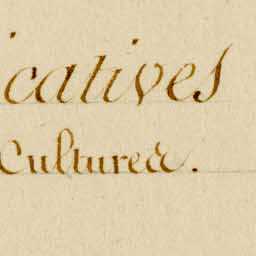 icatives
Culture &.